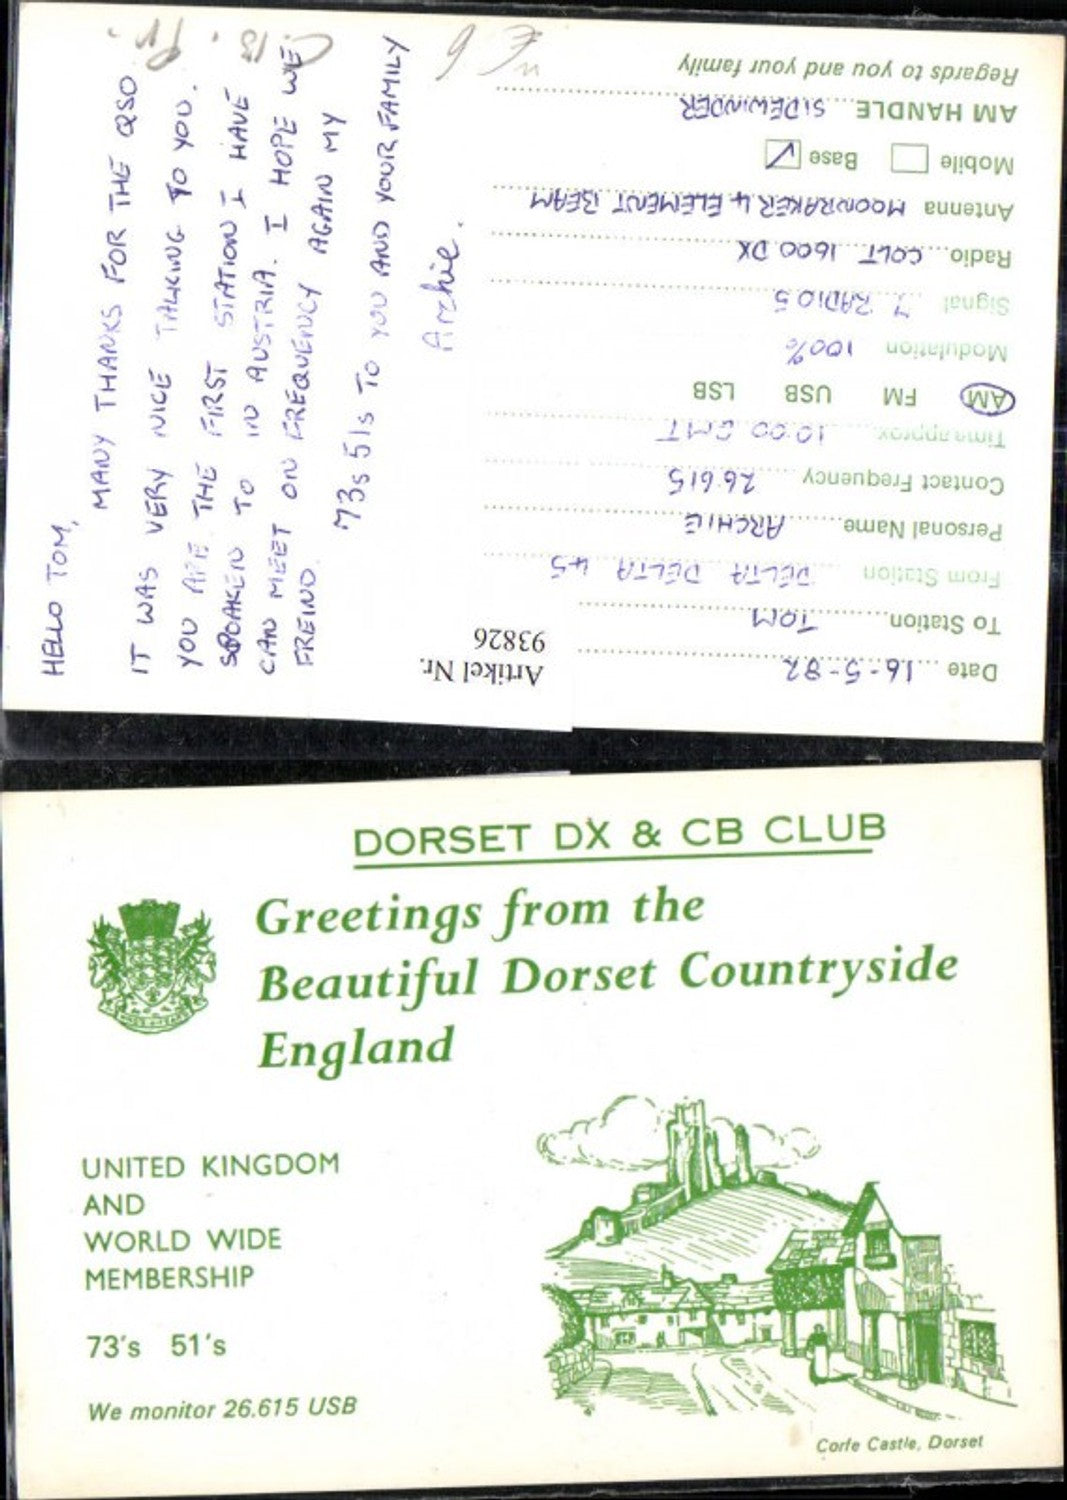 HELLO TOM,
MANY THANKS FOR THE QSO
IT WAS VERY NICE TALKING TO YOU.
YOU ARE THE FIRST STATION I HAVE
SPOAKEN TO IN AUSTRIA. I HOPE WE
CAN MEET ON FREQUENCY AGAIN MY
FREIND.
73s 51s TO YOU AND YOUR FAMILY
Archie.
Artikel Nr.
93826
Date 16-5-82
To Station TOM
From Station DELTA DELTA 45
Personal Name ARCHIE
Contact Frequency 26.615
Time approx. 10.00 GMT
AM FM USB LSB
Modulation 100%
Signal 7 RADIO 5
Radio COLT 1600 DX
Antenna MOONRAKER 4 ELEMENT BEAM
Mobile Base
AM HANDLE SIDEWINDER
Regards to you and your family
DORSET DX & CB CLUB
Greetings from the
Beautiful Dorset Countryside
England
UNITED KINGDOM
AND
WORLD WIDE
MEMBERSHIP
73's 51's
We monitor 26.615 USB
Corfe Castle, Dorset